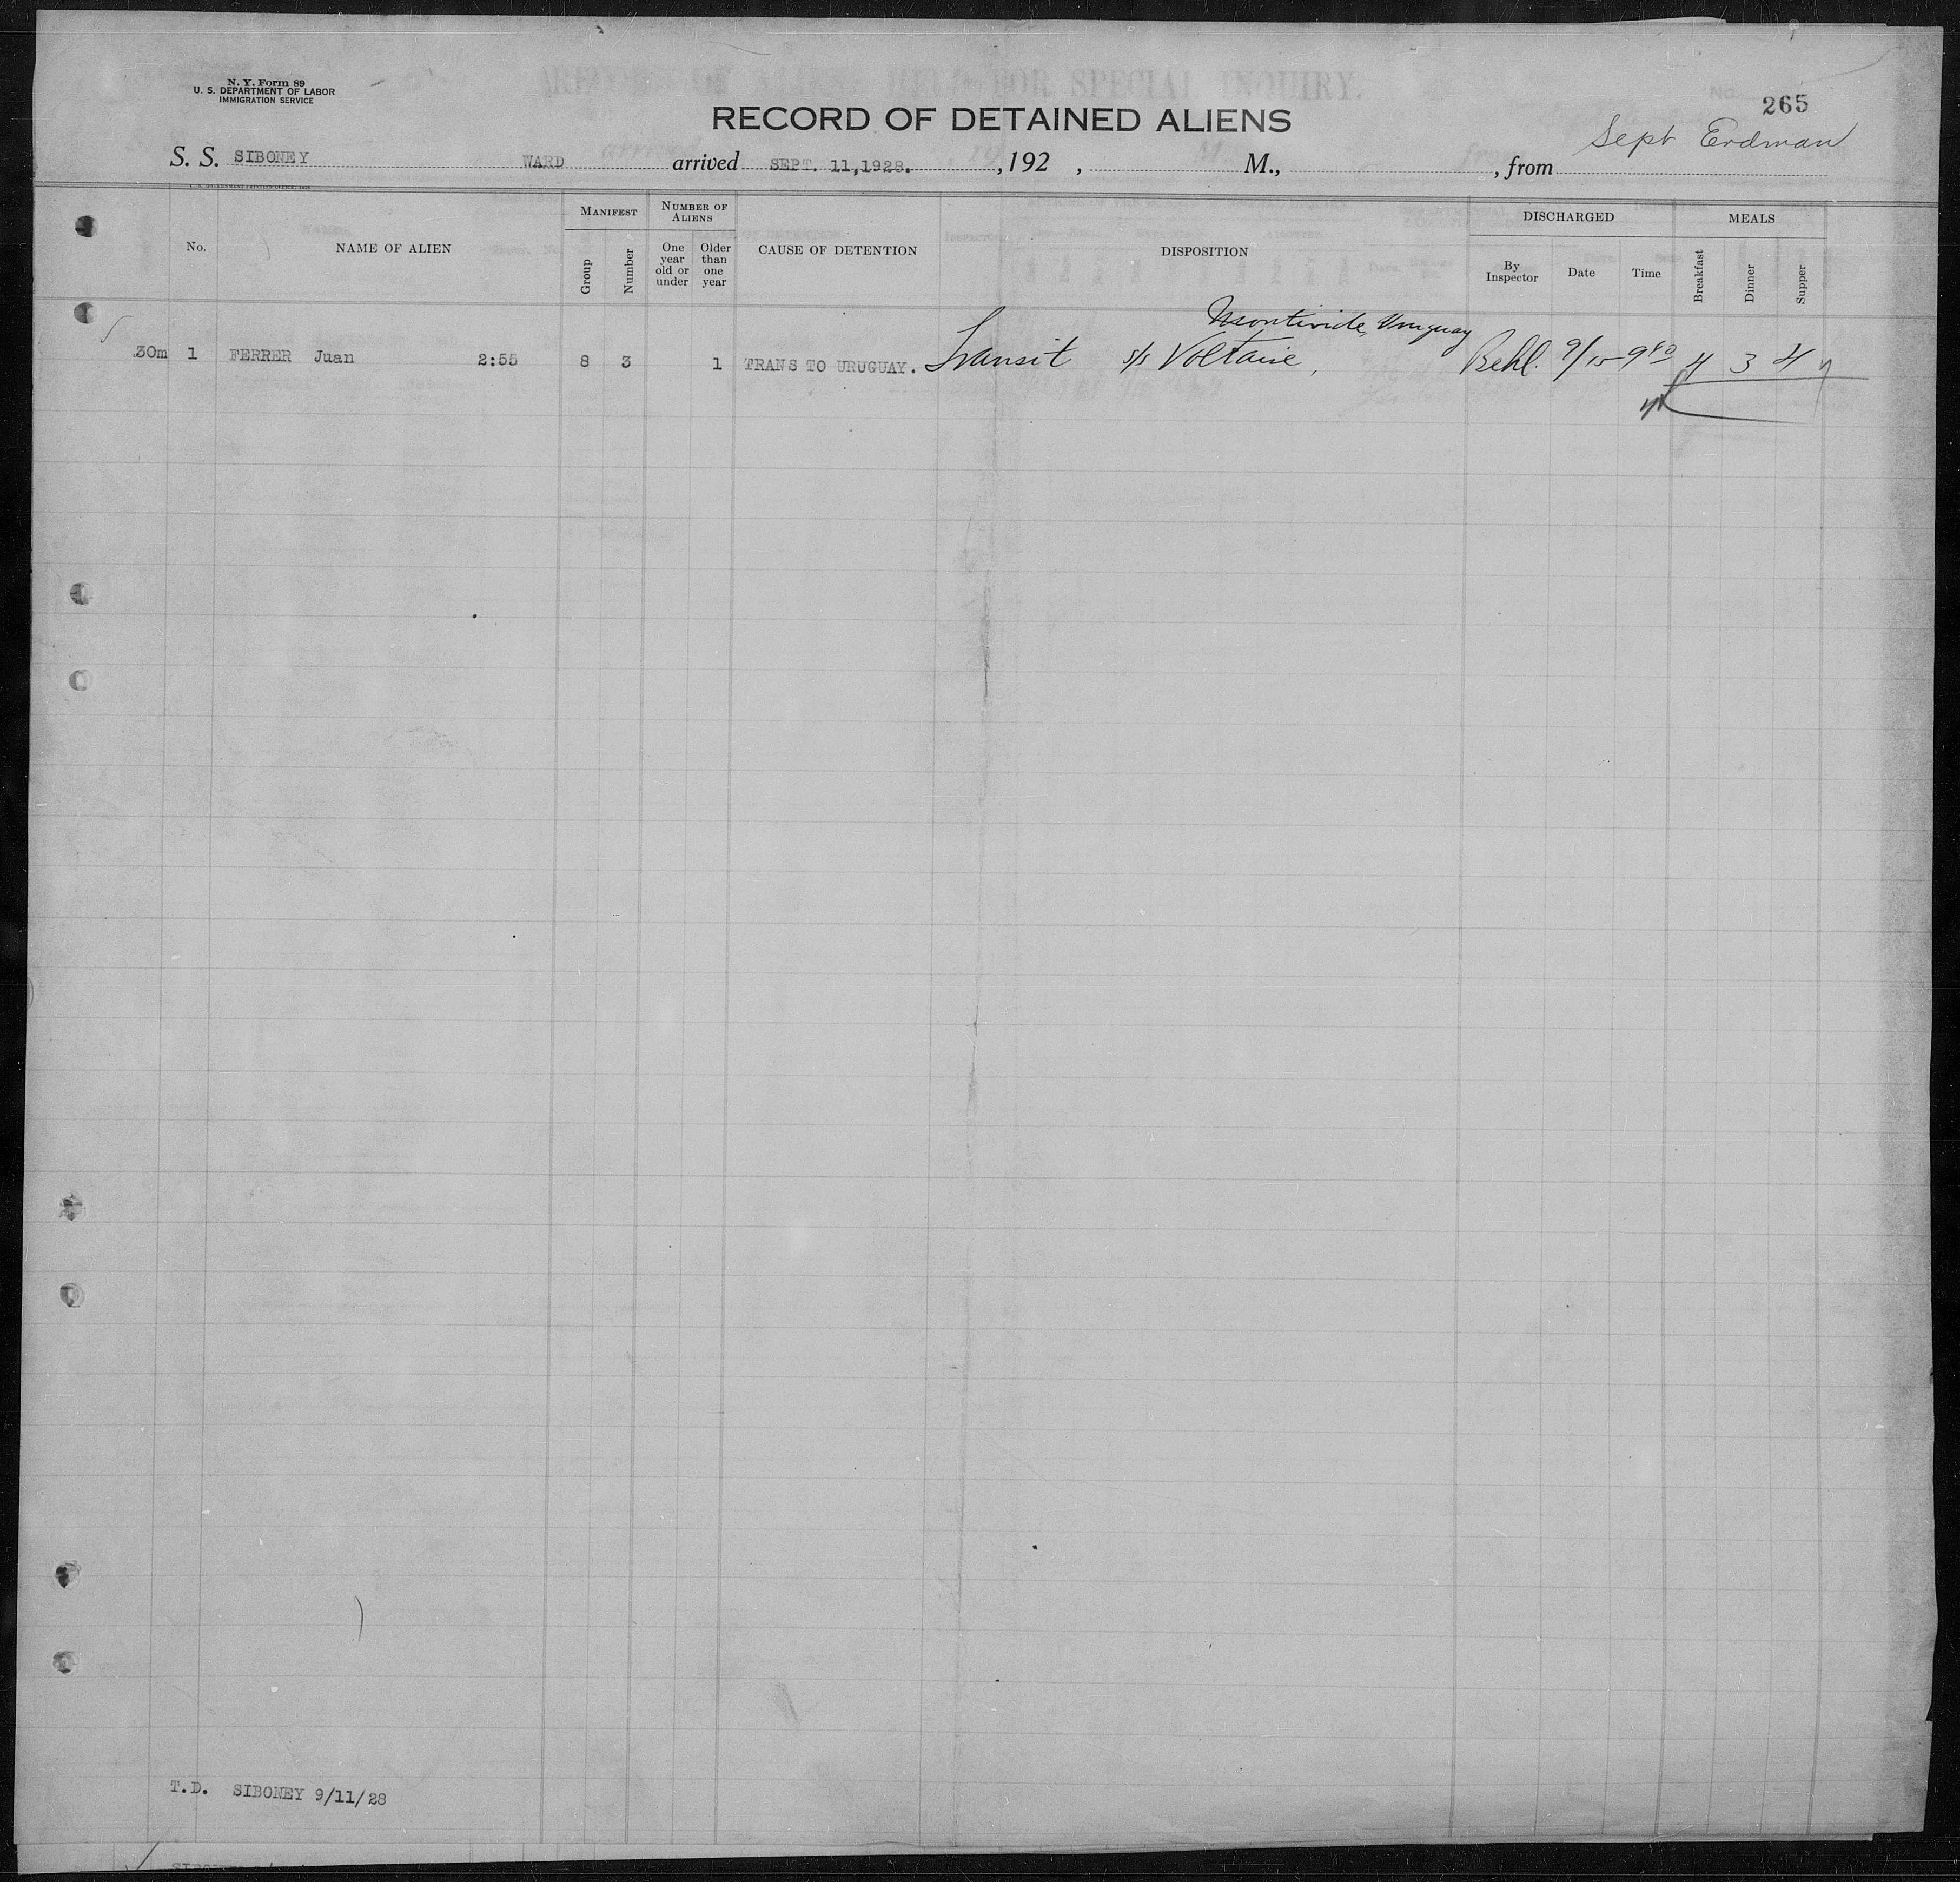 N. Y. Form 89
U. S. DEPARTMENT OF LABOR
IMMIGRATION SERVICE
265
RECORD OF DETAINED ALIENS
Sept Erdman
S. S. SIBONEY WARD arrived SEPT. 11,1928. , 192 , M., , from
No.
NAME OF ALIEN
MANIFEST
Group
Number
NUMBER OF ALIENS
One year old or under
Older than one year
CAUSE OF DETENTION
DISPOSITION
DISCHARGED
By Inspector
Date
Time
MEALS
Breakfast
Dinner
Supper
Montivide, Uruguay
30m 1 FERRER Juan 2:55 8 3 1 TRANS TO URUGUAY. Transit s/s Voltaire, 9/15 9 40 4 3 4
T.D. SIBONEY 9/11/28